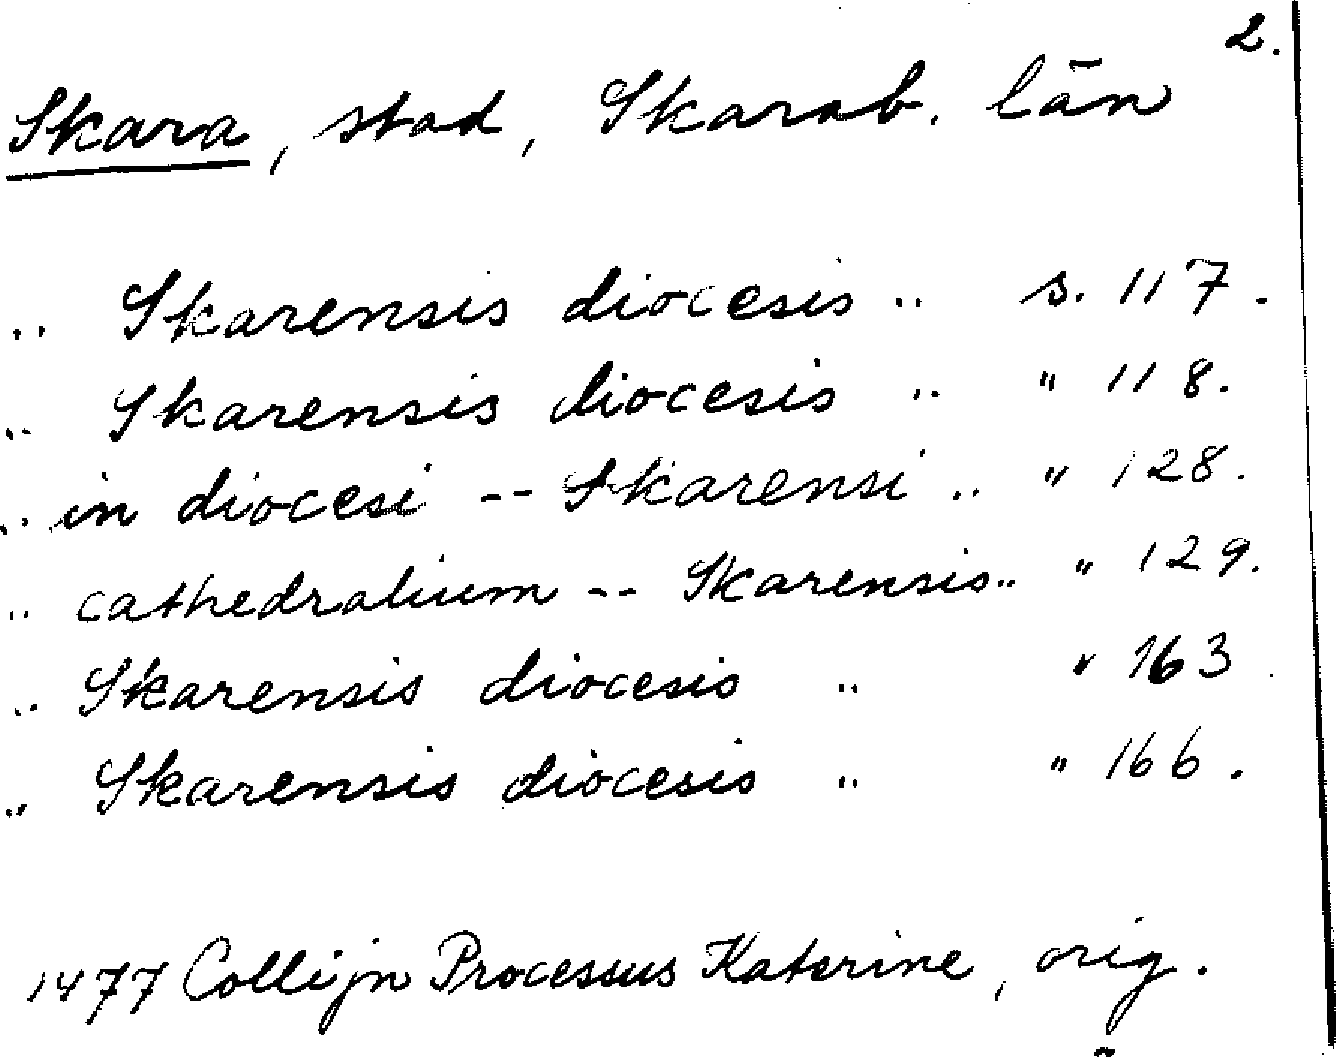 2.
Skara, stad, Skarab. län
.. Skarensis diocesis .. s. 117.
.. Skarensis diocesis .. " 118.
.. in diocesi -- Skarensi .. " 128.
.. cathedralium -- Skarensis .. " 129.
.. Skarensis diocesis .. " 163.
.. Skarensis diocesis .. " 166.
1477 Collijn Processus Katerine, orig.